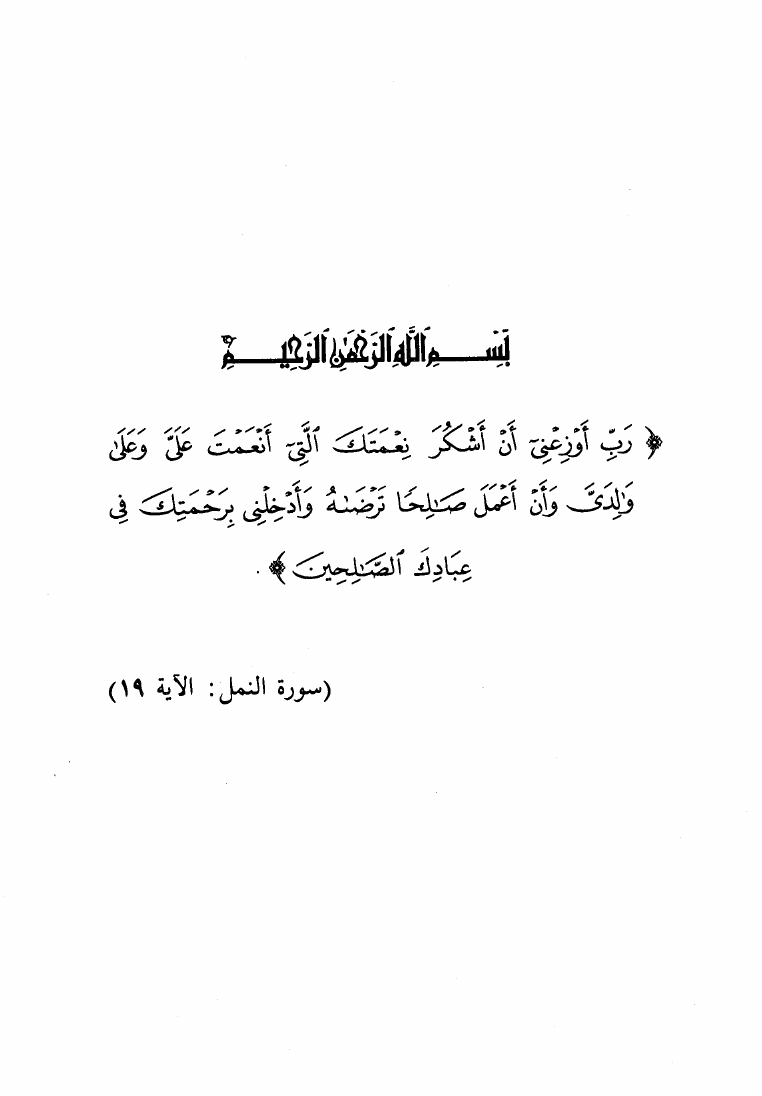 بِسْمِ ٱللَّهِ ٱلرَّحْمَٰنِ ٱلرَّحِيمِ
﴿ رَبِّ أَوْزِعْنِىٓ أَنْ أَشْكُرَ نِعْمَتَكَ ٱلَّتِىٓ أَنْعَمْتَ عَلَىَّ وَعَلَىٰ
وَٰلِدَىَّ وَأَنْ أَعْمَلَ صَٰلِحًا تَرْضَىٰهُ وَأَدْخِلْنِى بِرَحْمَتِكَ فِى
عِبَادِكَ ٱلصَّٰلِحِينَ ﴾ .
(سورة النمل: الآية ١٩)